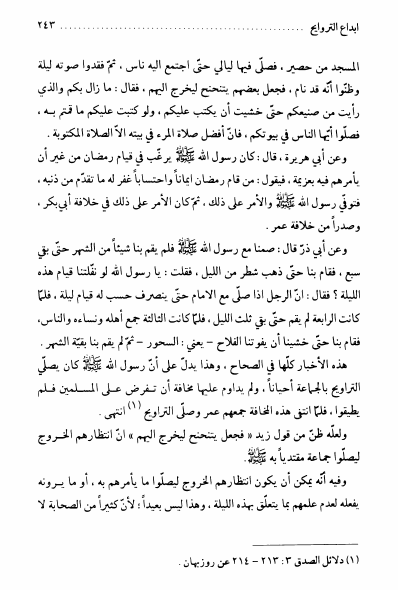 ابداع التراويح ........................................................ ٢٤٣
المسجد من حصير ، فصلّى فيها ليالي حتّى اجتمع اليه ناس ، ثمّ فقدوا صوته ليلة
وظنّوا أنّه قد نام ، فجعل بعضهم يتنحنح ليخرج اليهم ، فقال : ما زال بكم والذي
رأيت من صنيعكم حتّى خشيت أن يكتب عليكم ، ولو كتبت عليكم ما قمتم بـه ،
فصلّوا أيّها الناس في بيوتكم ، فانّ أفضل صلاة المرء في بيته الّا الصلاة المكتوبة .
وعن أبي هريرة ، قال : كان رسول الله ﷺ يرغّب في قيام رمضان من غير أن
يأمرهم فيه بعزيمة ، فيقول : من قام رمضان ايماناً واحتساباً غفر له ما تقدّم من ذنبه ،
فتوفّي رسول الله ﷺ والأمر على ذلك ، ثمّ كان الأمر على ذلك في خلافة أبي بكر ،
وصدراً من خلافة عمر .
وعن أبي ذرّ قال : صمنا مع رسول الله ﷺ فلم يقم بنا شيئاً من الشهر حتّى بقي
سبع ، فقام بنا حتّى ذهب شطر من الليل ، فقلت : يا رسول الله لو نفّلتنا قيام هذه
الليلة ؟ فقال : انّ الرجل اذا صلّى مع الامام حتّى ينصرف حسب له قيام ليلة ، فلمّا
كانت الرابعة لم يقم حتّى بقي ثلث الليل ، فلمّا كانت الثالثة جمع أهله ونساءه والناس،
فقام بنا حتّى خشينا أن يفوتنا الفلاح – يعني : السحور – ثمّ لم يقم بنا بقيّة الشهر .
هذه الأخبار كلّها في الصحاح ، وهذا يدلّ على أنّ رسول الله ﷺ كان يصلّي
التراويح بالجماعة أحياناً ، ولم يداوم عليها مخافة أن تـفرض عـلى المسـلمين فـلم
يطيقوا ، فلمّا انتفى هذه المخافة جمعهم عمر وصلّى التراويح (١) انتهى .
ولعلّه ظنّ من قول زيد « فجعل يتنحنح ليخرج اليهم » انّ انتظارهم الخـروج
ليصلّوا جماعة مقتدياً به ﷺ.
وفيه أنّه يمكن أن يكون انتظارهم الخروج ليصلّوا ما يأمرهم به ، أو ما يـرونه
يفعله لعدم علمهم بما يتعلّق بهذه الليلة ، وهذا ليس بعيداً ؛ لأنّ كثيراً من الصحابة لا
(١) دلائل الصدق ٣ : ٢١٣ – ٢١٤ عن روزبهان .